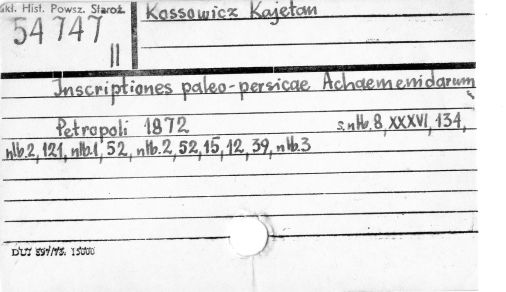 akł. Hist. Powsz. Staroż.
54 747
II
Kossowicz Kajetan
Inscriptiones paleo-persicae Achaemenidarum
Petropoli 1872 s. nlb. 8, XXXVI, 134,
nlb. 2, 121, nlb. 1, 52, nlb. 2, 52, 15, 12, 39, nlb. 3